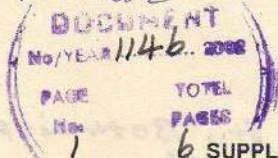 DOCUMENT
No/YEAR 1146 2002
PAGE TOTEL
No. PAGES
1 6 SUPPL